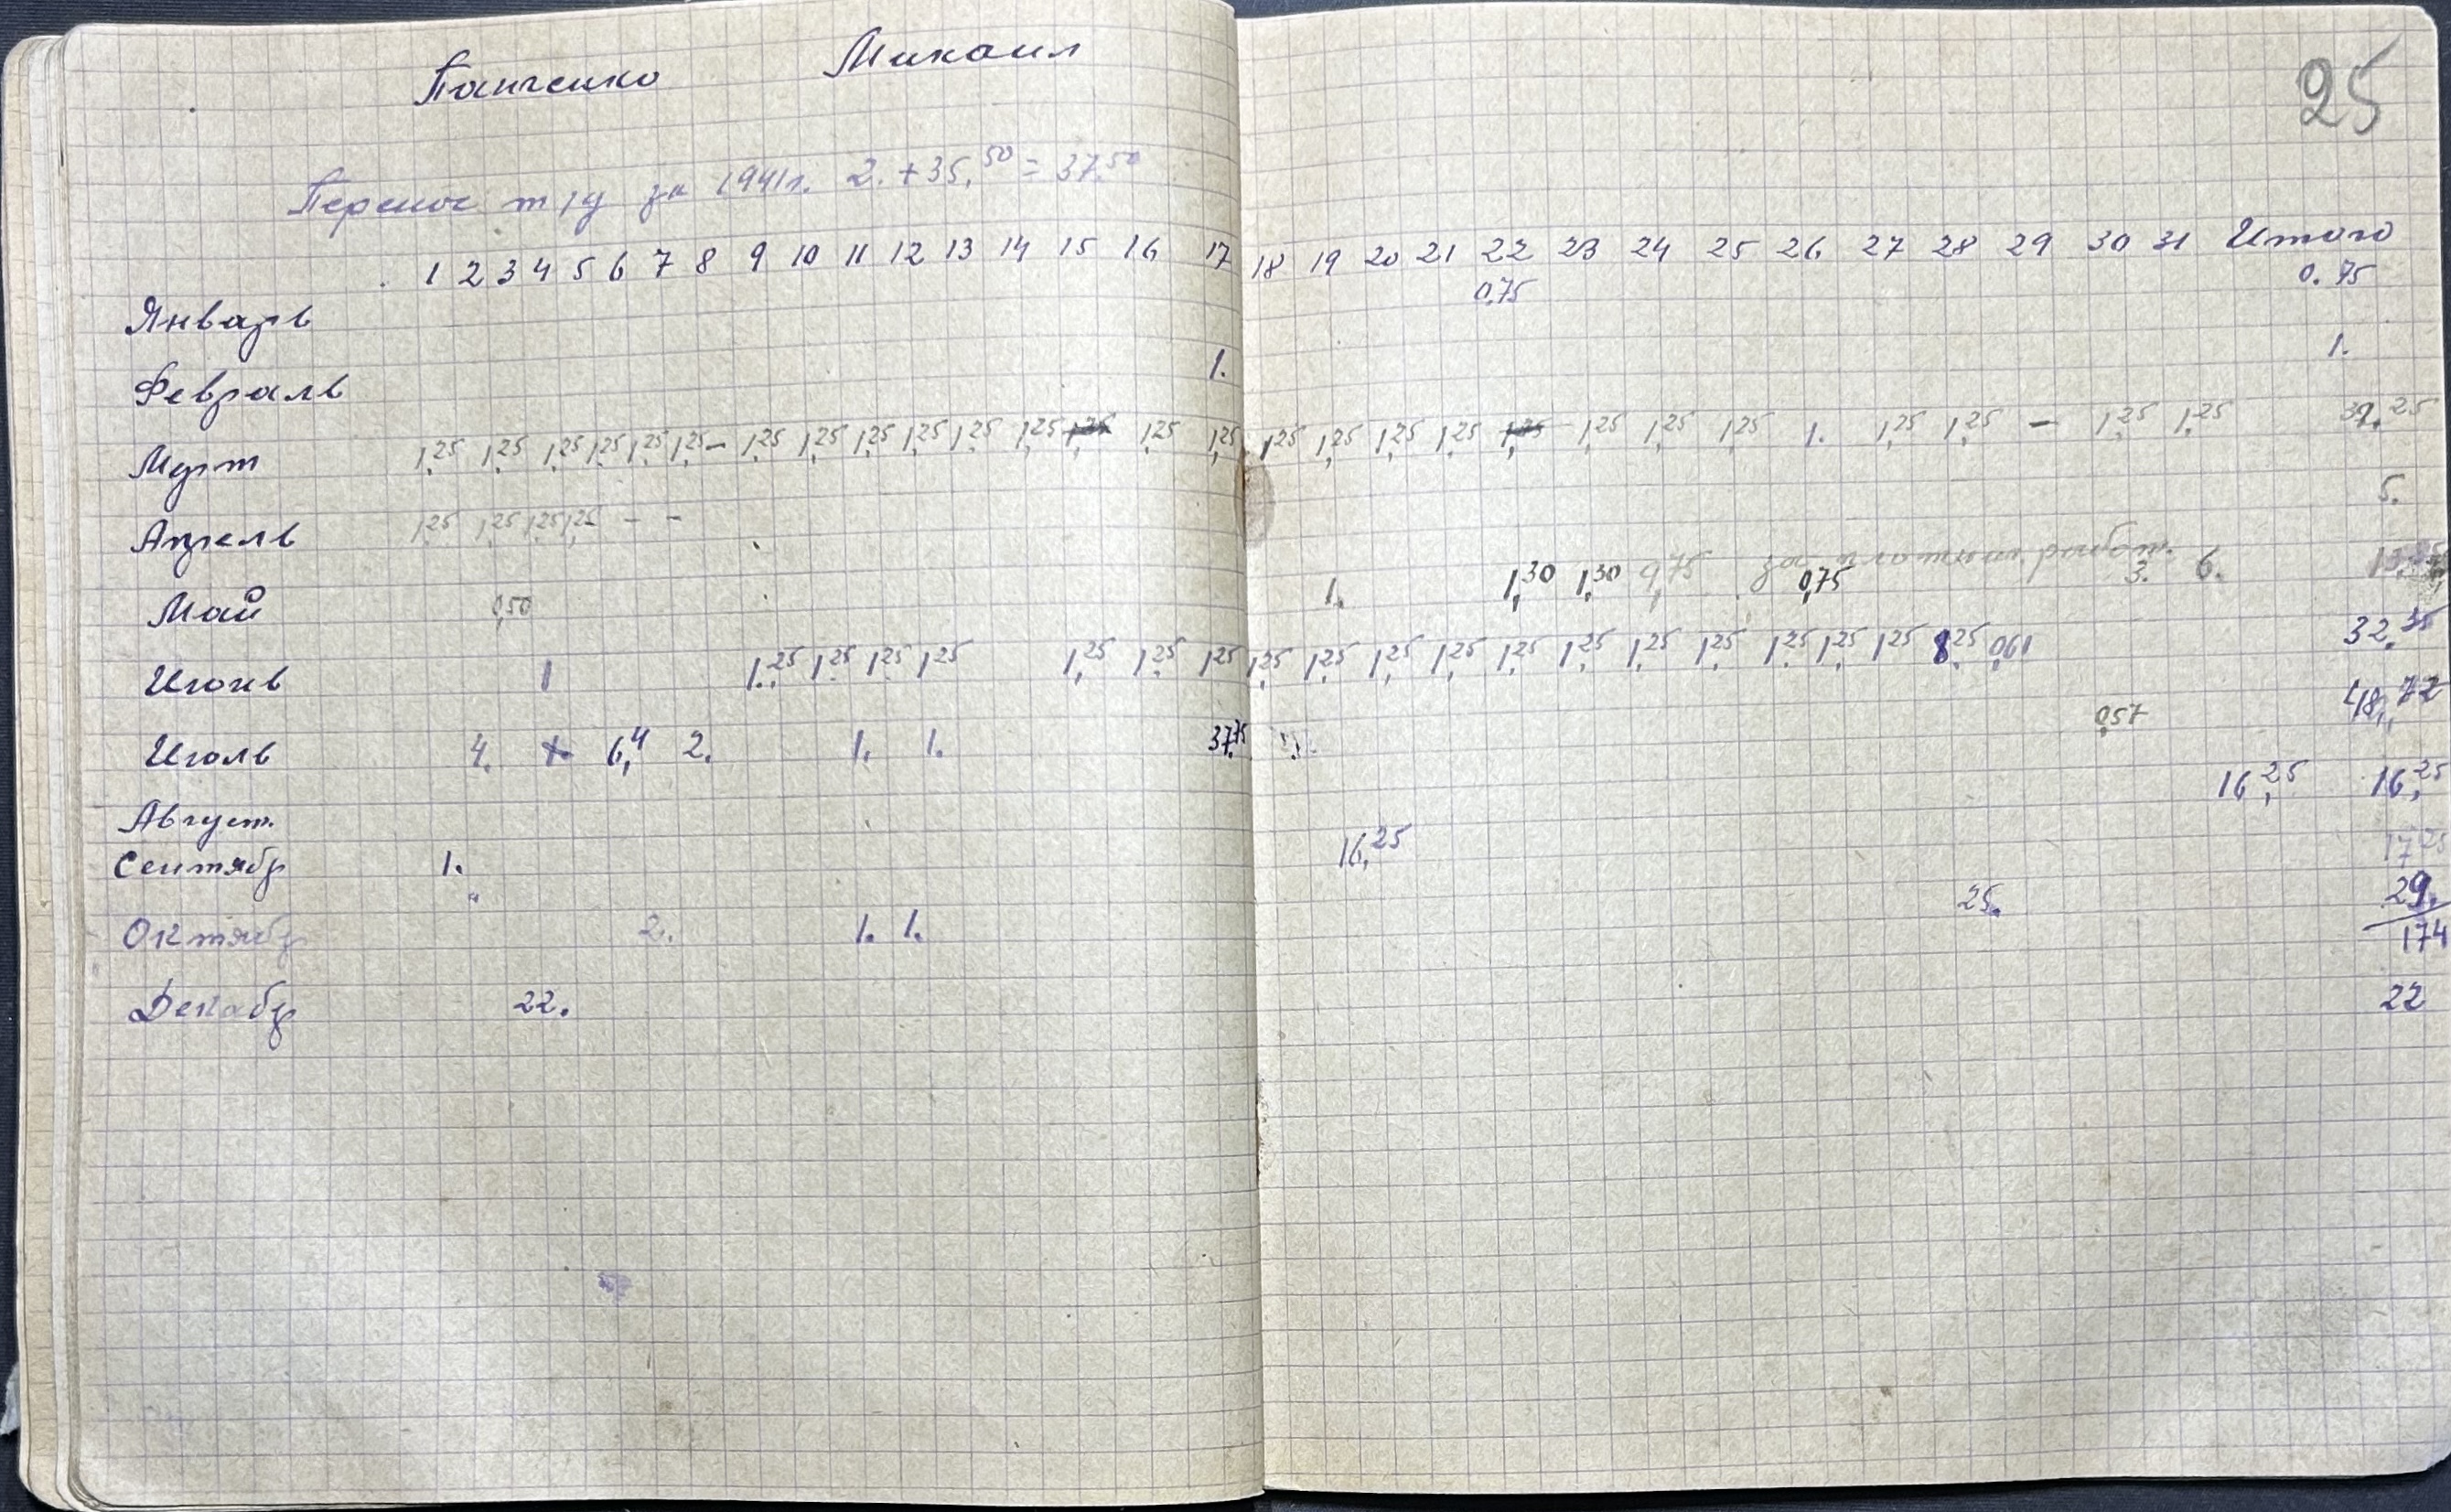 Панченко Михаил
25
Перенос т/д за 1941г. 2. + 35,50 = 37.50
1 2 3 4 5 6 7 8 9 10 11 12 13 14 15 16 17 18 19 20 21 22 23 24 25 26 27 28 29 30 31 Итого
Январь 0,75 0.75
Февраль 1. 1.
Март 1,25 1,25 1,25 1,25 1,25 1,25 - 1,25 1,25 1,25 1,25 1,25 1,25 1,25 1,25 1,25 1,25 1,25 1,25 1,25 1,25 1,25 1,25 1,25 1. 1,25 1,25 - 1,25 1,25 25
Апрель 1,25 1,25 1,25 1,25 - - 5.
за работ.
Май 0,50 1. 1,30 1,30 0,75 0,75 3. 6.
Июнь 1 1,25 1,25 1,25 1,25 1,25 1,25 1,25 1,25 1,25 1,25 1,25 1,25 1,25 1,25 1,25 1,25 1,25 1,25 8,25 0,61 32,35
Июль 4. 1. 6,4 2. 1. 1. 37,75 0,57 48,72
Август. 16,25 16,25
Сентябр 1. 16,25 17,25
Октябр 2. 1. 1. 25. 29.
174
Декабр 22. 22